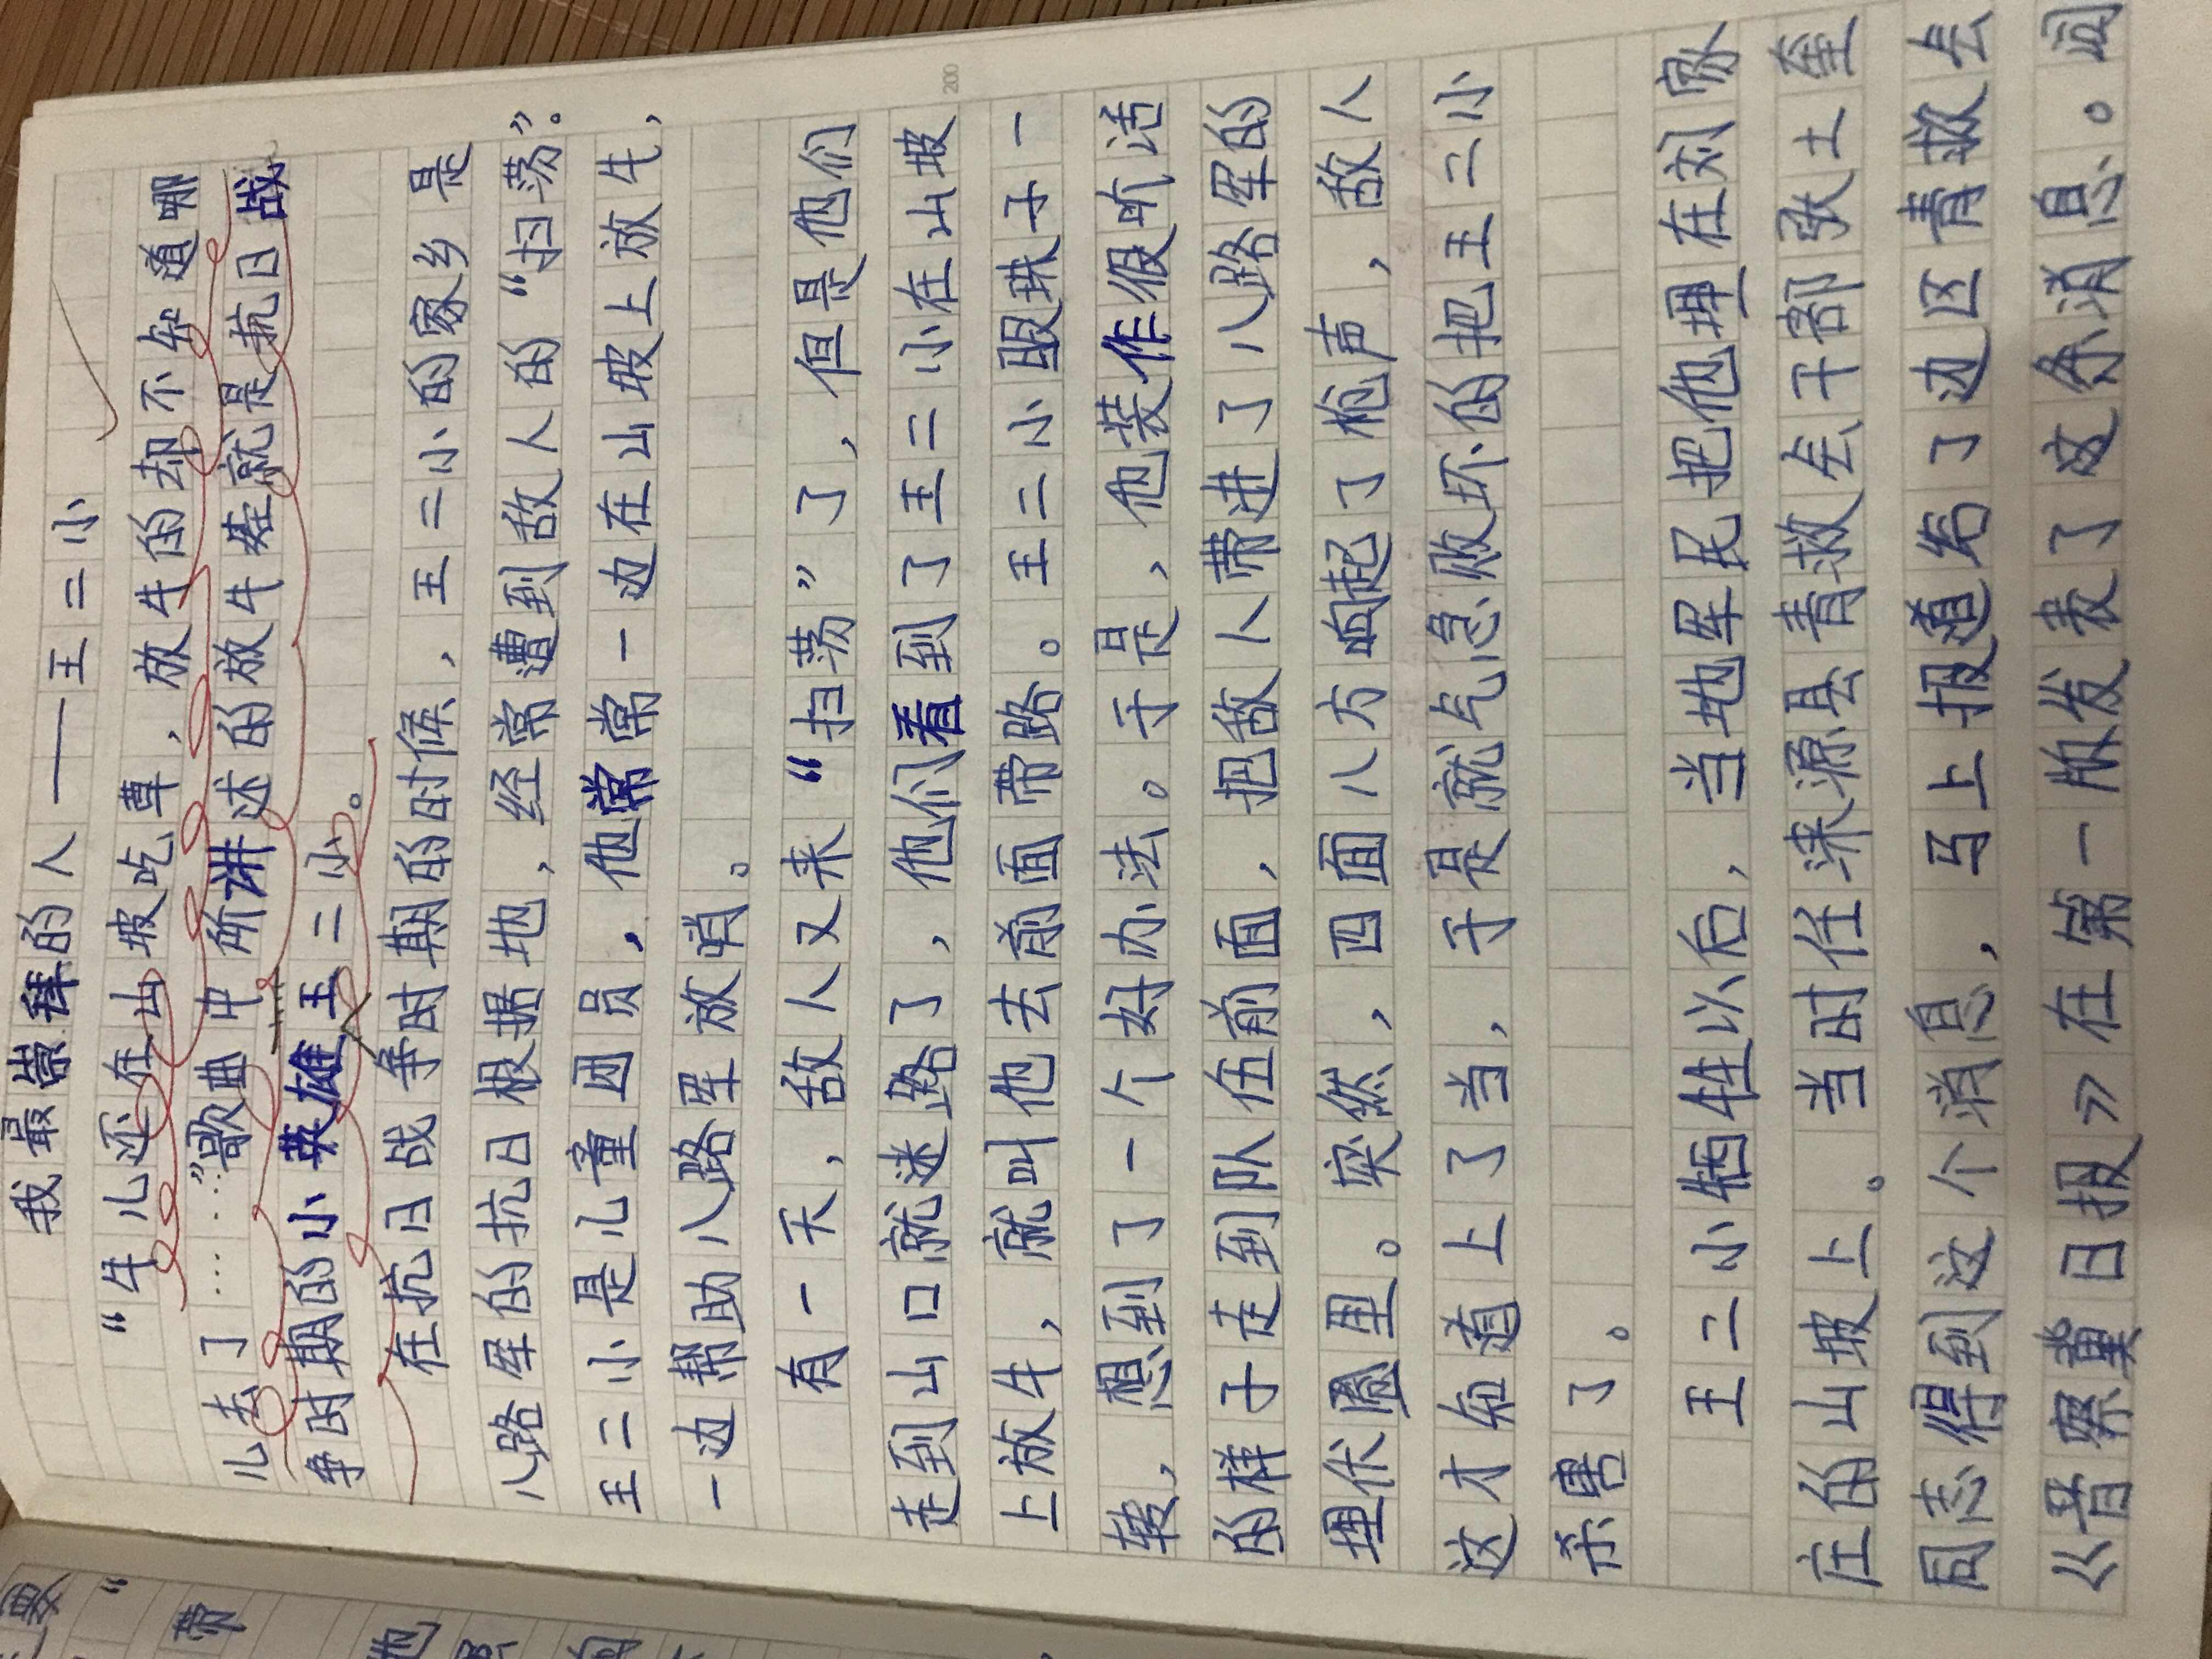 我最崇拜的人——王二小
“牛儿还在山坡吃草,放牛的却不知道哪
儿去了……”歌曲中所讲述的放牛娃就是抗日战
争时期的小英雄王二小。
在抗日战争时期的时候,王二小的家乡是
八路军的抗日根据地,经常遭到敌人的“扫荡”。
王二小是儿童团员,他常常一边在山坡上放牛,
一边帮助八路军放哨。
有一天,敌人又来“扫荡”了,但是他们
走到山口就迷路了,他们看到了王二小在山坡
200
上放牛,就叫他去前面带路。王二小眼珠子一
转,想到了一个好办法。于是,他装作很听话
的样子走到队伍前面,把敌人带进了八路军的
埋伏圈里。突然,四面八方响起了枪声,敌人
这才知道上了当,于是就气急败坏的把王二小
杀害了。
王二小牺牲以后,当地军民把他埋在刘家
庄的山坡上。当时任涞源县青救会干部张士奎
同志得到这个消息,马上报道给了边区青救会
《晋察冀日报》在第一版发表了这条消息。闻
要“
带
他